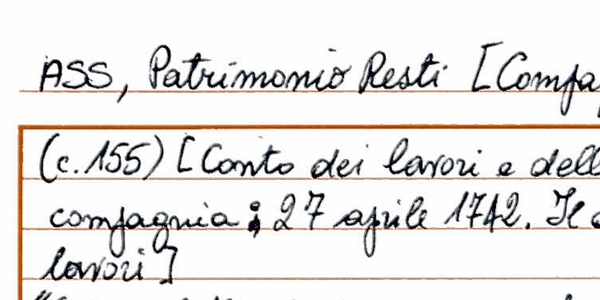 ASS, Patrimonio Resti [Compa
(c.155) [Conto dei lavori e dell
compagnia; 27 aprile 1742. Il
lavori]